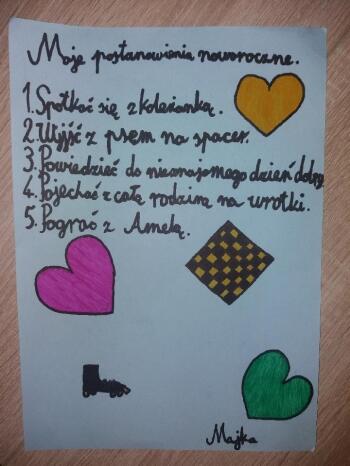 Moje postanowienia noworoczne.
1. Spotkać się z koleżanką.
2. Wyjść z psem na spacer.
3. Powiedzieć do nieznajomego dzień dobry.
4. Pojechać z całą rodziną na wrotki.
5. Pograć z Amelą.
Majka